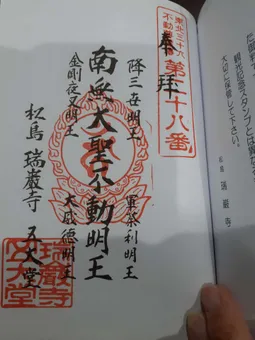 観光記念スタンプとは異なり
大切に保管して下さい。
松島 瑞巌寺
東北三十六
不動尊
第二十八番
奉拝
降三世明王 軍荼利明王
南無大聖不動明王
金剛夜叉明王 大威徳明王
松島 瑞巌寺 五大堂
瑞巌寺
五大堂